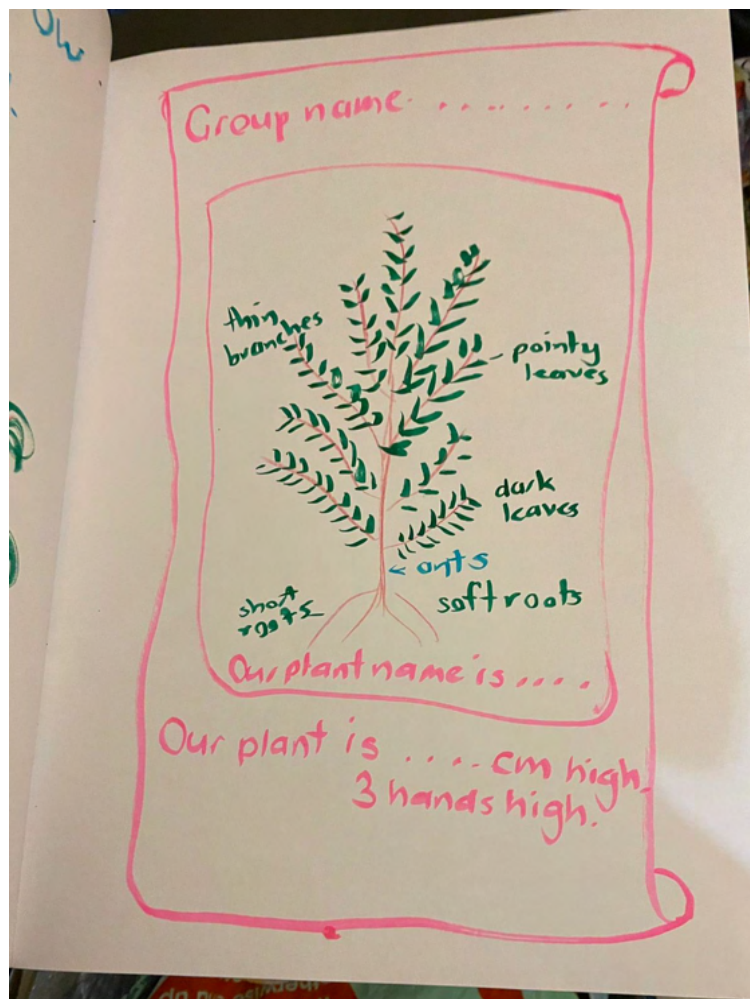 ow
Group name. . . . . . . . . .
thin
branches
pointy
leaves
dark
leaves
< ants
short
roots
soft roots
Our plant name is . . . .
Our plant is . . . . cm high.
3 hands high.